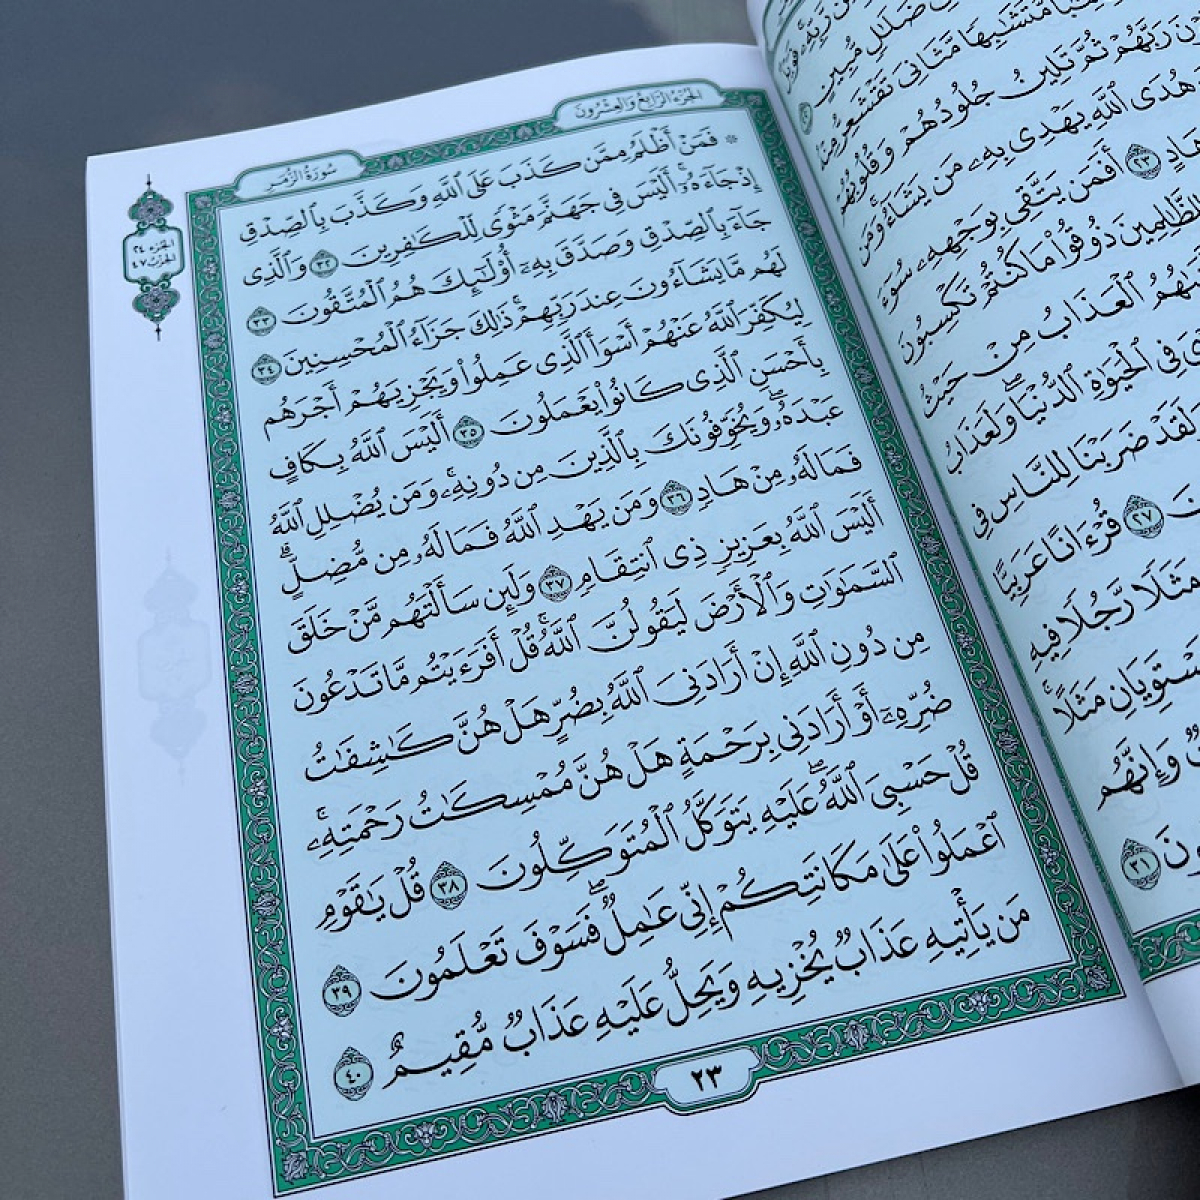 الجُزْءُ الرَّابِعُ وَالعِشْرُونَ
سُورَةُ الزُّمَرِ
الجزء ٢٤
الحزب ٤٧
۞ فَمَنْ أَظْلَمُ مِمَّن كَذَبَ عَلَى ٱللَّهِ وَكَذَّبَ بِٱلصِّدْقِ
إِذْ جَآءَهُۥٓۚ أَلَيْسَ فِى جَهَنَّمَ مَثْوًى لِّلْكَٰفِرِينَ ٣٢ وَٱلَّذِى
جَآءَ بِٱلصِّدْقِ وَصَدَّقَ بِهِۦٓ أُو۟لَٰٓئِكَ هُمُ ٱلْمُتَّقُونَ ٣٣
لَهُم مَّا يَشَآءُونَ عِندَ رَبِّهِمْۚ ذَٰلِكَ جَزَآءُ ٱلْمُحْسِنِينَ ٣٤
لِيُكَفِّرَ ٱللَّهُ عَنْهُمْ أَسْوَأَ ٱلَّذِى عَمِلُوا۟ وَيَجْزِيَهُمْ أَجْرَهُم
بِأَحْسَنِ ٱلَّذِى كَانُوا۟ يَعْمَلُونَ ٣٥ أَلَيْسَ ٱللَّهُ بِكَافٍ
عَبْدَهُۥۖ وَيُخَوِّفُونَكَ بِٱلَّذِينَ مِن دُونِهِۦۚ وَمَن يُضْلِلِ ٱللَّهُ
فَمَا لَهُۥ مِنْ هَادٍ ٣٦ وَمَن يَهْدِ ٱللَّهُ فَمَا لَهُۥ مِن مُّضِلٍّۗ
أَلَيْسَ ٱللَّهُ بِعَزِيزٍ ذِى ٱنتِقَامٍ ٣٧ وَلَئِن سَأَلْتَهُم مَّنْ خَلَقَ
ٱلسَّمَٰوَٰتِ وَٱلْأَرْضَ لَيَقُولُنَّ ٱللَّهُۚ قُلْ أَفَرَءَيْتُم مَّا تَدْعُونَ
مِن دُونِ ٱللَّهِ إِنْ أَرَادَنِىَ ٱللَّهُ بِضُرٍّ هَلْ هُنَّ كَٰشِفَٰتُ
ضُرِّهِۦٓ أَوْ أَرَادَنِى بِرَحْمَةٍ هَلْ هُنَّ مُمْسِكَٰتُ رَحْمَتِهِۦۚ
قُلْ حَسْبِىَ ٱللَّهُۖ عَلَيْهِ يَتَوَكَّلُ ٱلْمُتَوَكِّلُونَ ٣٨ قُلْ يَٰقَوْمِ
ٱعْمَلُوا۟ عَلَىٰ مَكَانَتِكُمْ إِنِّى عَٰمِلٌۖ فَسَوْفَ تَعْلَمُونَ ٣٩
مَن يَأْتِيهِ عَذَابٌ يُخْزِيهِ وَيَحِلُّ عَلَيْهِ عَذَابٌ مُّقِيمٌ ٤٠
٢٣
ضَلَٰلٍ مُّبِينٍ
مُّتَشَٰبِهًا مَّثَانِىَ تَقْشَعِرُّ مِنْهُ
رَبَّهُمْ ثُمَّ تَلِينُ جُلُودُهُمْ وَقُلُوبُهُمْ
هُدَى ٱللَّهِ يَهْدِى بِهِۦ مَن يَشَآءُۚ وَمَن
هَادٍ ٢٣ أَفَمَن يَتَّقِى بِوَجْهِهِۦ سُوٓءَ
لِلظَّٰلِمِينَ ذُوقُوا۟ مَا كُنتُمْ تَكْسِبُونَ
ٱلْعَذَابُ مِنْ حَيْثُ
فِى ٱلْحَيَوٰةِ ٱلدُّنْيَاۖ وَلَعَذَابُ
وَلَقَدْ ضَرَبْنَا لِلنَّاسِ فِى
٢٧ قُرْءَانًا عَرَبِيًّا
مَثَلًا رَّجُلًا فِيهِ
يَسْتَوِيَانِ مَثَلًاۚ
وَإِنَّهُم
٣١